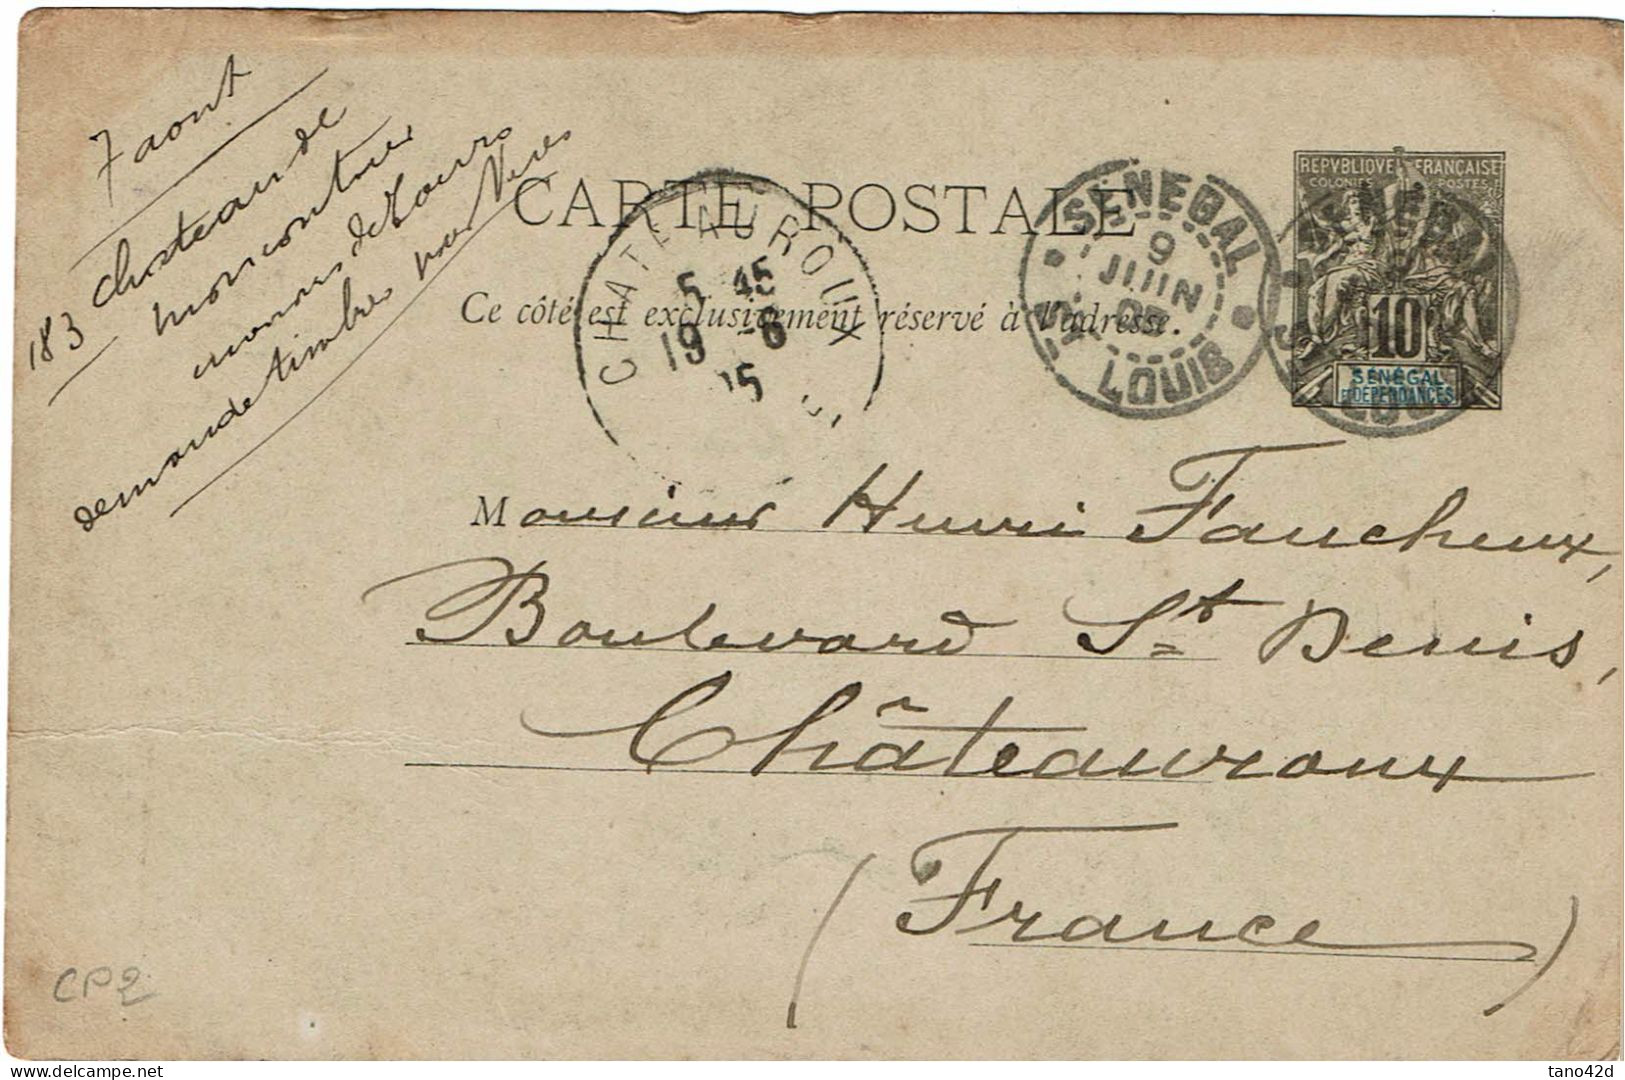 7 aout
183 chateau de
moncontour
demande timbres
CARTE POSTALE
Ce côté est exclusivement réservé à l'adresse.
CHATEAUROUX
5 45
19 -6
05
SENEGAL
9
JUIN
05
ST LOUIS
REPVBLIQVE FRANÇAISE
COLONIES POSTES
10
SENEGAL
ET DÉPENDANCES
Monsieur Henri Faucheux,
Boulevard St Denis,
Châteauroux
(France)
CP2
delcampe.net
tano42d